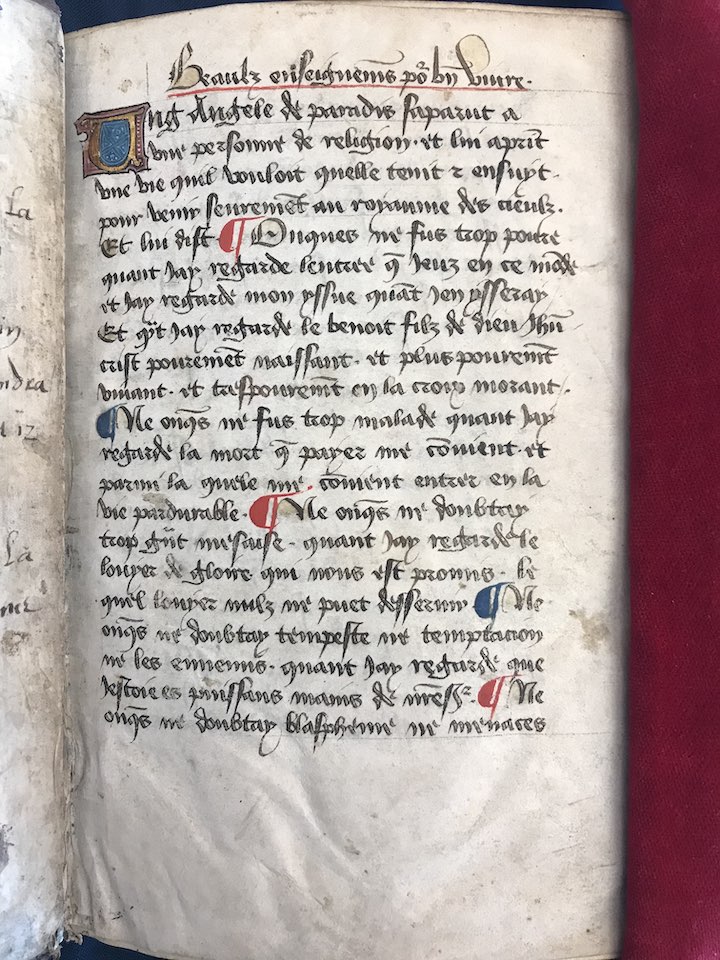 Beaulz enseignems por bn viure.
Ung Angele de paradis saparut a
vne personne de religion. et lui aprit
vne vie quel vouloit quelle tenit ⁊ ensuyt.
pour venir seuremēt au royaume des cieulz.
Et lui dist ¶ Onques ne fus trop poure
quant Jay regarde lentree q̄ Jeuz en ce mōde
et Jay regarde mon yssue quāt Jen ysseray
Et qt Jay regarde le benoit filz de dieu Jhū
crist pouremēt naissant. et plus pouremt
viuant. et trespouremt en la croix morant.
¶ Ne onqs ne fus trop malade quant Jay
regarde la mort q̄ payer me cōuient. et
parmi la quele me cōuient entrer en la
vie pardurable. ¶ Ne onqs ne doubtay
trop gnt mesaise. quant Jay regarde le
louyer de gloire qui nous est promis. le
quel louyer nulz ne puet desseruir ¶ Ne
onqs ne doubtay tempeste ne temptacion
ne les ennemis. quant Jay regarde que
Jestoie es puissans mains de nrē sr. ¶ Ne
onqs ne doubtay blaspheme ne menaces
la
ndra
iz
La